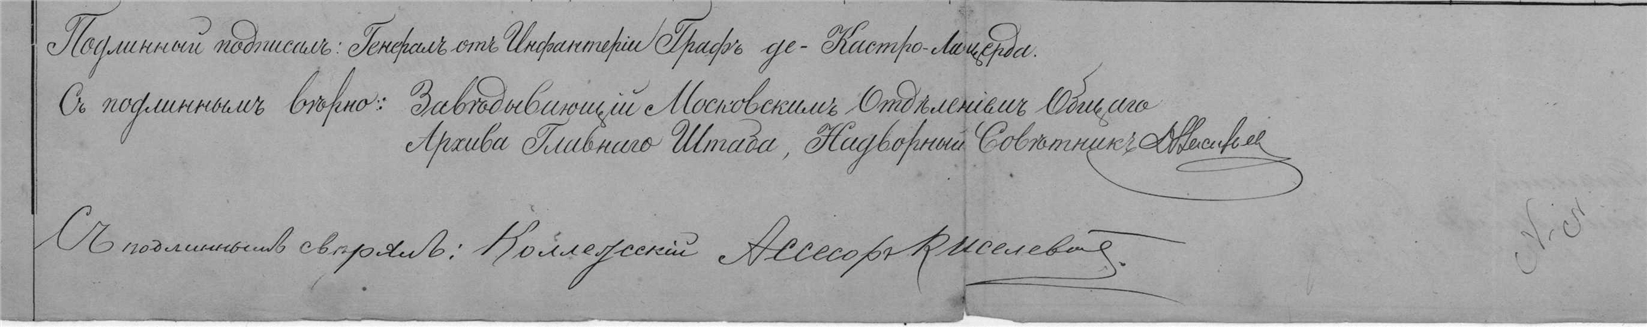 Подлинный подписалъ: Генералъ отъ Инфантеріи Графъ де-Кастро-Лацерда.
Съ подлиннымъ вѣрно: Завѣдывающій Московскимъ Отдѣленіемъ Общаго
Архива Главнаго Штаба, Надворный Совѣтникъ
Съ подлиннымъ свѣрялъ: Коллежскій Ассесоръ Киселевъ.